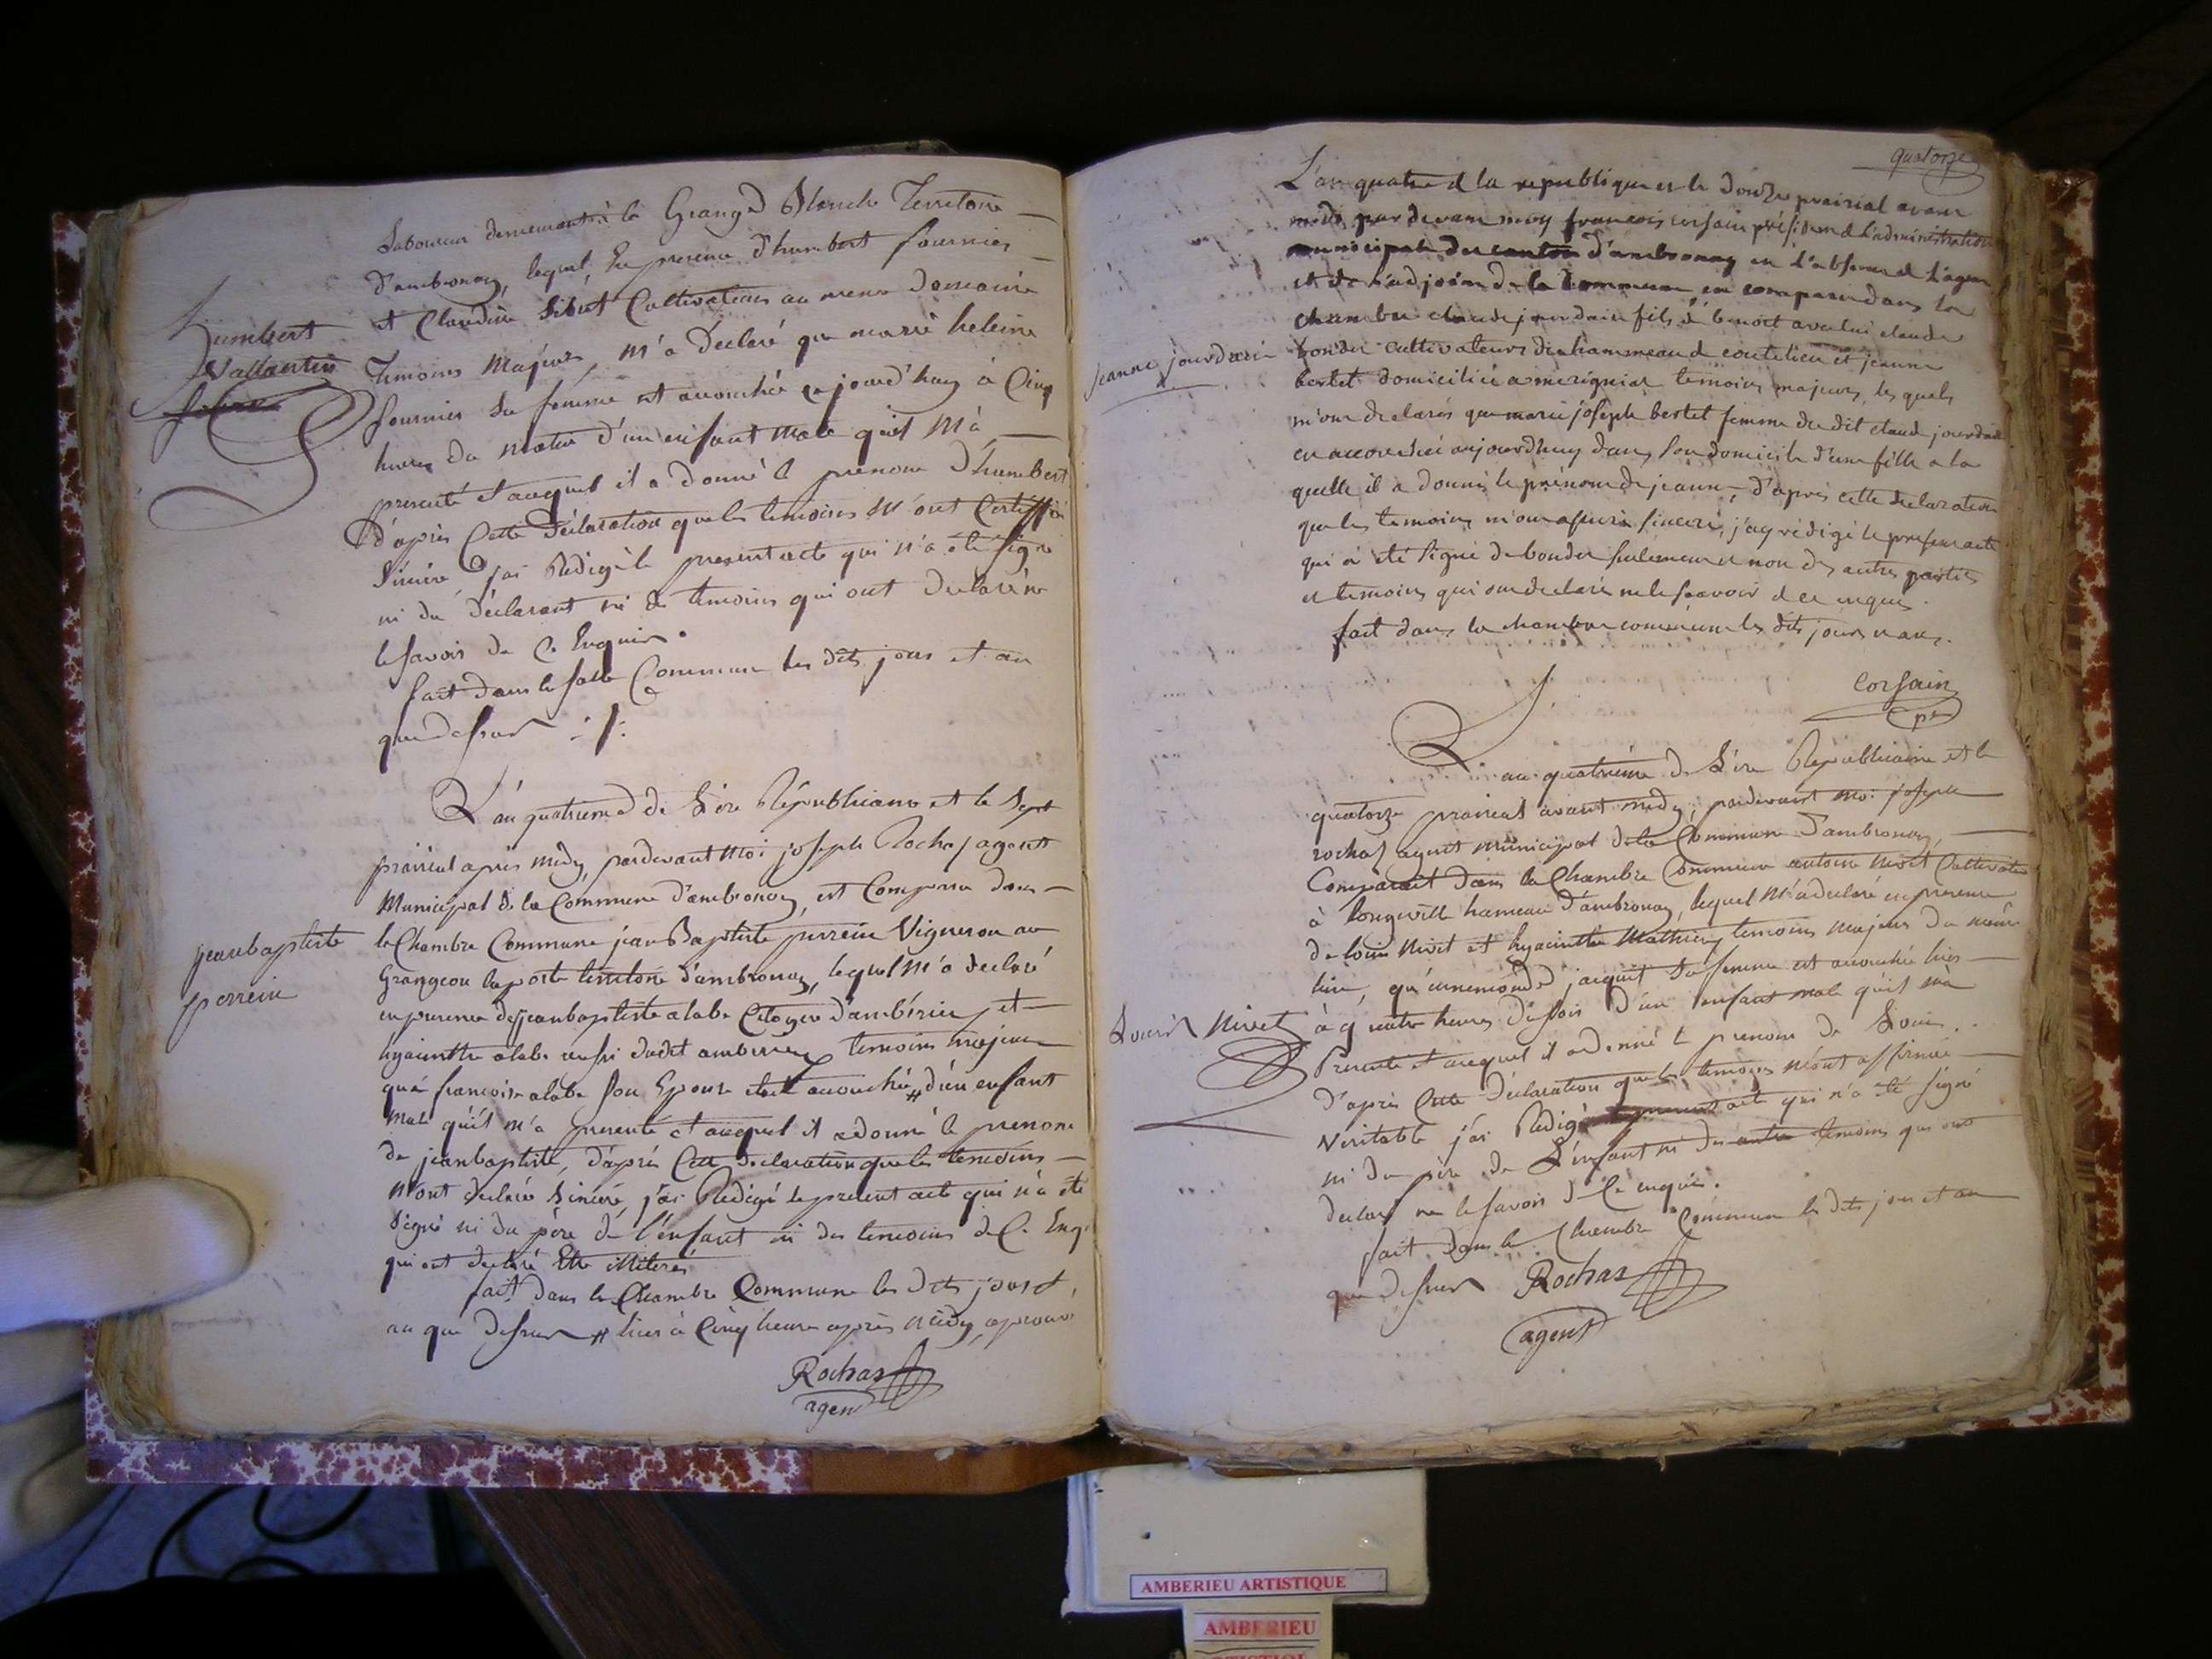 Laboureur demeurant à la Grange Blanche Territoire
d'ambronay, lequel, En presence d'humbert fournier
et Claudine Cultivateurs au meme Domaine
Temoins Majeurs, M'a Declaré que marie heleine
fournier sa femme est accouchée ce jourd'huy à Cinq
heures du matin d'un enfant male qu'il M'a
presenté et auquel il a donné le prenom d'humbert
D'après Cette Déclaration que les temoins M'ont Certiffié
Sincère j'ai Redigé le present acte qui n'a été signé
ni du Déclarant ni des temoins qui ont declaré ne
le savoir de Ce Enquis.
fait dans la salle Commune les dits jour et an
que dessus
humbert
Vallantin
L'an quatrieme de L'ère Républicaine et le Sept
prairial après midy, pardevant Moi joseph Rochas agent
Municipal de la Commune d'ambronay, est Comparu dans
la Chambre Commune jean Baptiste perrein Vigneron au
Grangeon laporte territoire d'ambronay, lequel M'a declaré
en presence de jeanbaptiste alabe Citoyen d'ambérieu et
hyacinthe alabe aussi dudit amberieu temoins majeurs
que françoise alabe son Epouse etoit accouchée # d'un enfant
Male qu'il m'a presenté et auquel il a donné le prenom
de jeanbaptiste, d'après Cette declaration que les temoins
M'ont declaré Sincère, j'ai Redigé le present acte qui n'a été
signé ni du père de l'enfant ni des temoins de Ce Enq.
qui ont declaré Etre illiterés
fait dans la Chambre Commune les dits jour et
an que Dessus # hier à Cinq heures après midy, aprouvé
jeanbaptiste
perrein
Rochas
agent
quatorze
L'an quatre de la republique et le douze prairial avant
midy par devant moy francois corsain président de l'administration
municipale du canton d'ambronay en l'absence de l'agent
et de l'adjoint de la Commune, en comparu dans la
chambre claude jourdain fils de benoit avec lui claude
bondet cultivateurs du hammeau de coutelieu et jeanne
bertet domiciliée a merigniat temoins majeurs, les quels
m'ont declarés que marie joseph bertet femme du dit claude jourdain
en accouchée aujourdhuy dans son domicile d'une fille a la
quelle il a donné le prénom de jeanne, d'après cette declaration
que les temoins m'ont assuré sincere, j'ay rédigé le present acte
qui a été signé de bondet seulement et non des autres parties
et temoins qui ont declaré ne le scavoir de ce enquis.
fait dans la chambre commune les dits jours et ans.
jeanne jourdain
Corsain
L'an quatrième de L'ère Républicaine et le
quatorze prairial avant midy, pardevant moi joseph
rochas agent municipal de la Commune d'ambronay,
Comparait dans la Chambre Commune antoine nivet Cultivateur
à longeville hameau d'ambronay, lequel M'a declaré en presence
de louis Nivet et hyacinthe Mathieu temoins majeurs du même
lieu, jacquit sa femme est accouchée hier
à quatre heures du soir d'un enfant male qu'il m'a
Presenté et auquel il a donné le prenom de Louis.
D'après Cette Déclaration que les temoins m'ont affirmée
Veritable j'ai Redigé le present acte qui n'a été signé
ni du père de L'enfant ni des autre temoins qui ont
declaré ne le savoir de Ce enquis.
fait dans la Chambre Commune les dits jour et an
que Dessus
Louis Nivet
Rochas
agent
AMBERIEU ARTISTIQUE
AMBERIEU
ARTISTIQUE